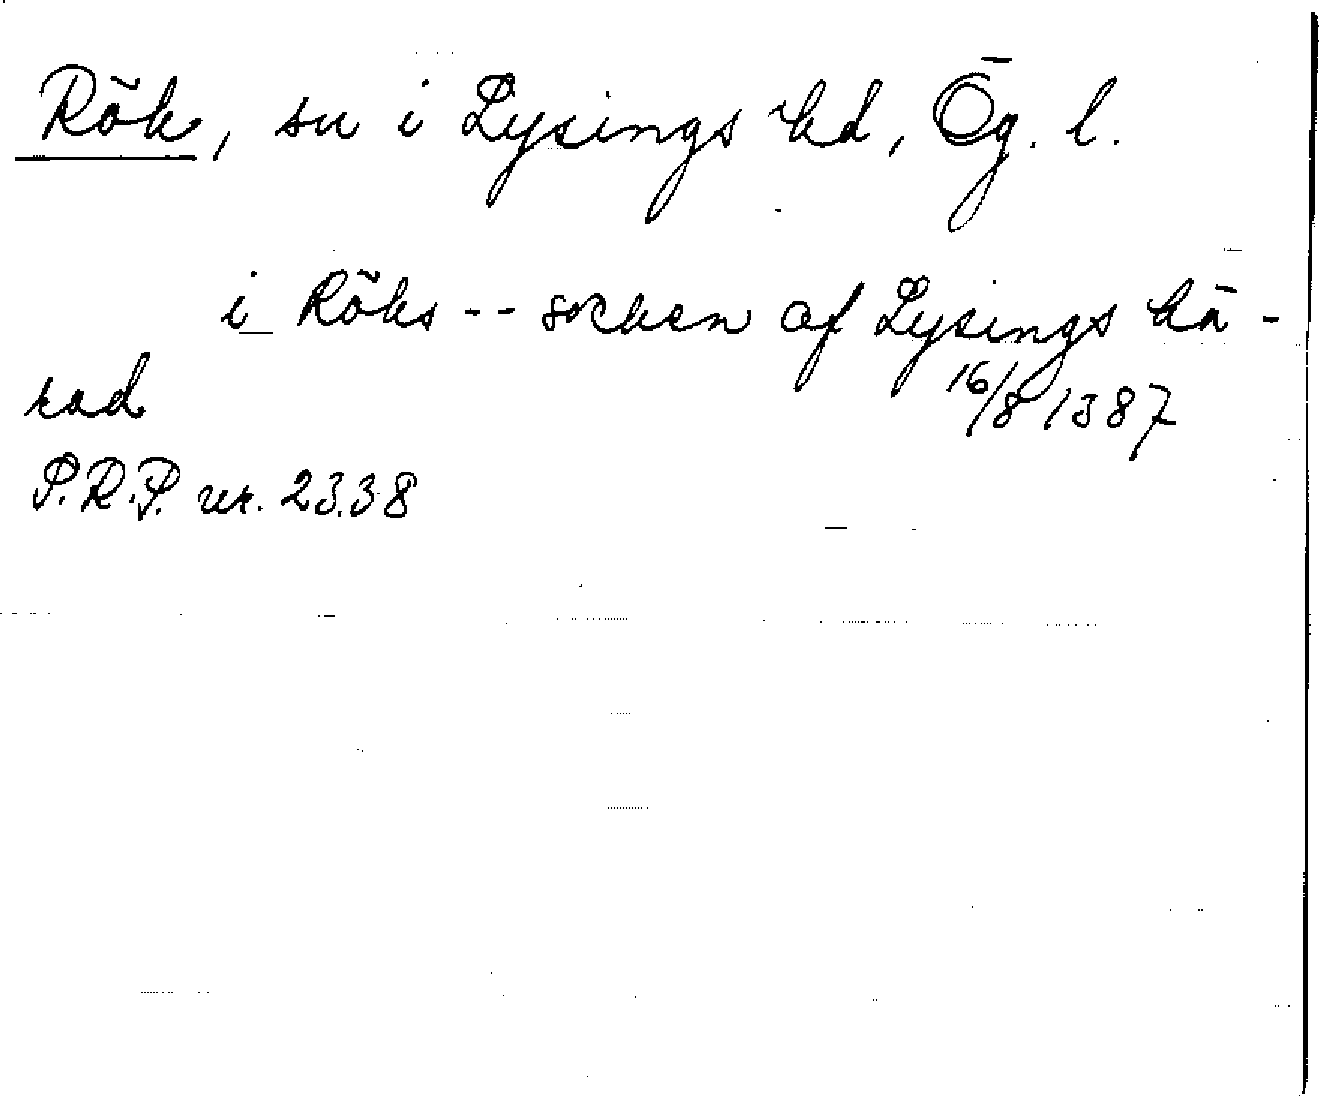 Rök, sn i Lysings hd, Ög. l.
i Röks -- socken af Lysings hä-
rad 16/8 1387
P.R.P. nr. 2338